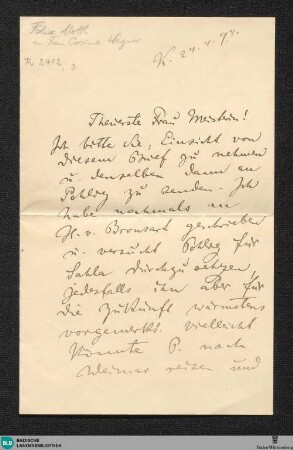 Felix Mottl
an Frau Cosima Wagner
K 2412, 3
K. 24.4.94.
Theuerste Frau Meisterin!
Ich bitte Sie, Einsicht von
diesem Brief zu nehmen
u. denselben dann an
Pohlig zu senden. Ich
habe nochmals an
H. v. Bronsart geschrieben
u. versucht Pohlig für
Sahla durchzusetzen,
jedesfalls ihn aber für
die Zukunft wärmstens
vorgemerkt. Vielleicht
könnte P. nach
Weimar reisen und
BLB
BADISCHE
LANDESBIBLIOTHEK
Baden-Württemberg